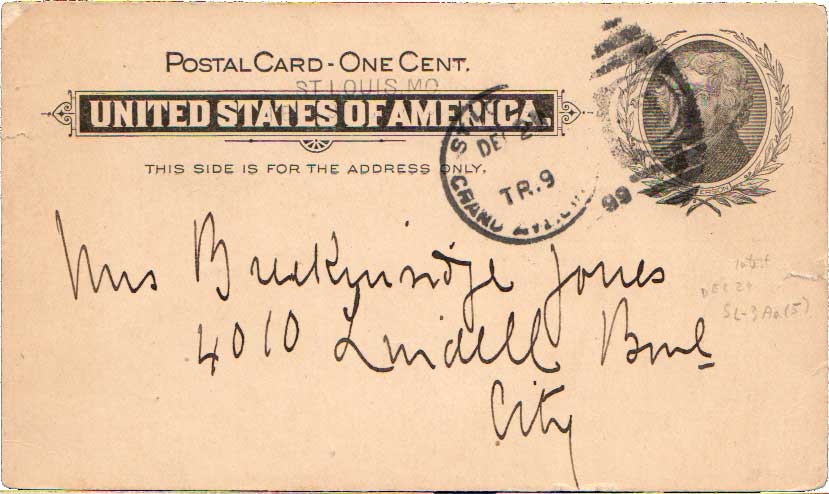 POSTAL CARD - ONE CENT.
ST. LOUIS, MO
UNITED STATES OF AMERICA.
THIS SIDE IS FOR THE ADDRESS ONLY.
ST.
DEC
TR. 9
GRAND AVE.
99
Mrs Breckinridge Jones
4010 Lindell Boul
City
latest
DEC 24
SL-3Aa(5)